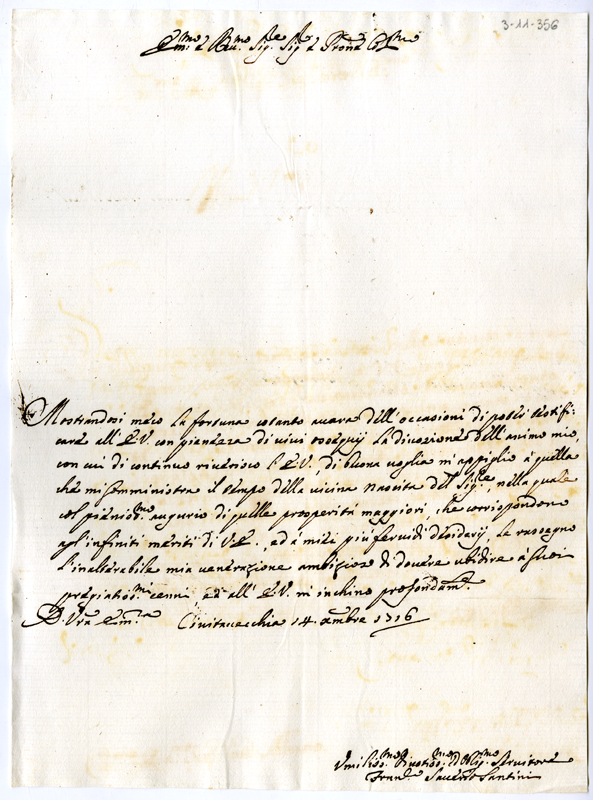 3-11-356
Em.mo e Rev.mo Sig.re Sig.r e Prone Col.mo
Mostrandosi meco la fortuna cotanto avara dell'occasioni di poter testifi:
care all'E.V. con pienezza di vivi ossequij la divozione dell'animo mio,
con cui di continuo riverisco l'E.V., di buona voglia m'appiglio à quella
che mi somministra il tempo della vicina Nascita del Sig.re, nella quale
col pienis.mo augurio di quelle prosperità maggiori, che corrispondono
agl'infiniti meriti di V.E., ed à miei più fervidi desiderij, le rassegno
l'inalterabile mia venerazione ambizioso di dovere ubidire à suoi
pregiatis.mi cenni, ed all'E.V. m'inchino profondam.te
D. Vra Em.za Civitavecchia 14. Xmbre 1716
Umiliss.mo Divotiss.mo ed Oblig.mo Servitore
Fran.co Saverio Santini